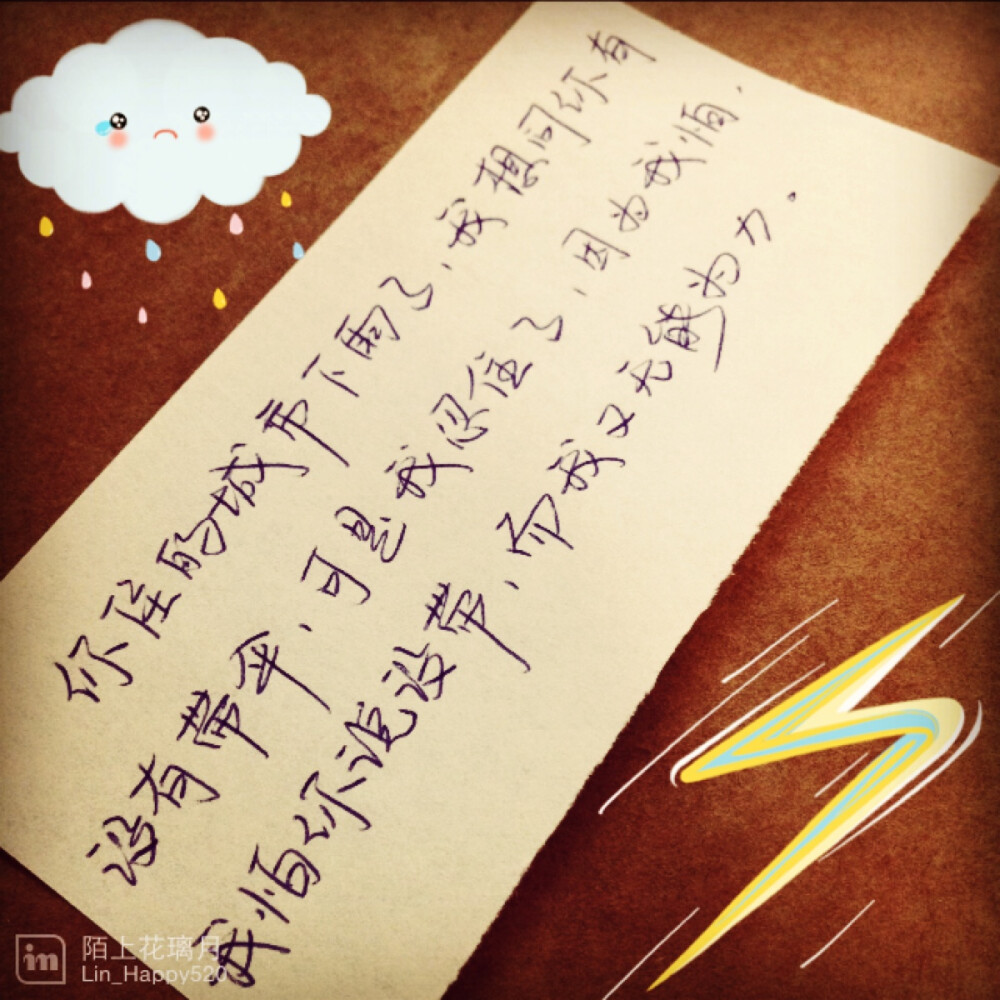 你住的城市下雨了，我想问你有
没有带伞，可是我忍住了，因为我怕，
我怕你说没带，而我又无能为力。
im 陌上花璃月
Lin_Happy520